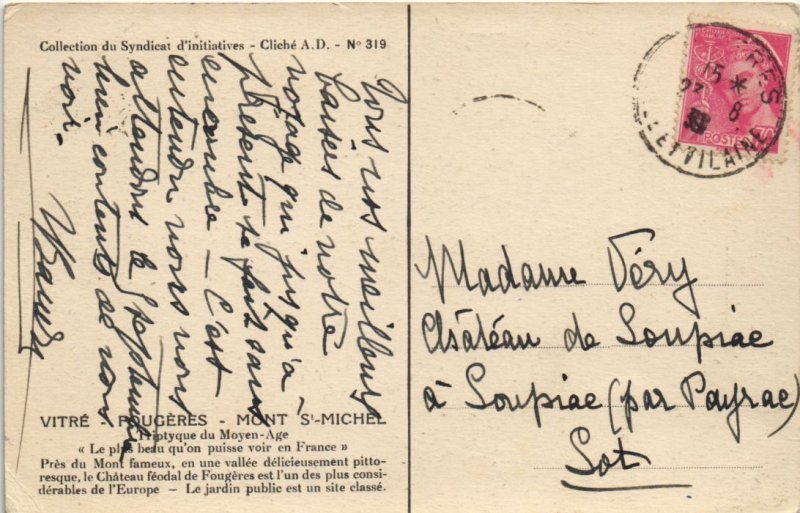 Collection du Syndicat d'initiatives - Cliché A.D. - N° 319
Tous nos meilleurs
baisers de notre
voyage qui jusqu'à
présent se fait sans
encombre - C'est
entendu nous vous
attendons le 3 septembre
bien contents de vous
voir.
VITRÉ - FOUGÈRES - MONT St-MICHEL
Triptyque du Moyen-Age
« Le plus beau qu'on puisse voir en France »
Près du Mont fameux, en une vallée délicieusement pitto-
resque, le Château féodal de Fougères est un des plus consi-
dérables de l'Europe - Le jardin public est un site classé.
15 *
8
ET VILAINE
POSTES
Madame Véry
Château de Loupiac
à Loupiac (par Payrac)
Lot